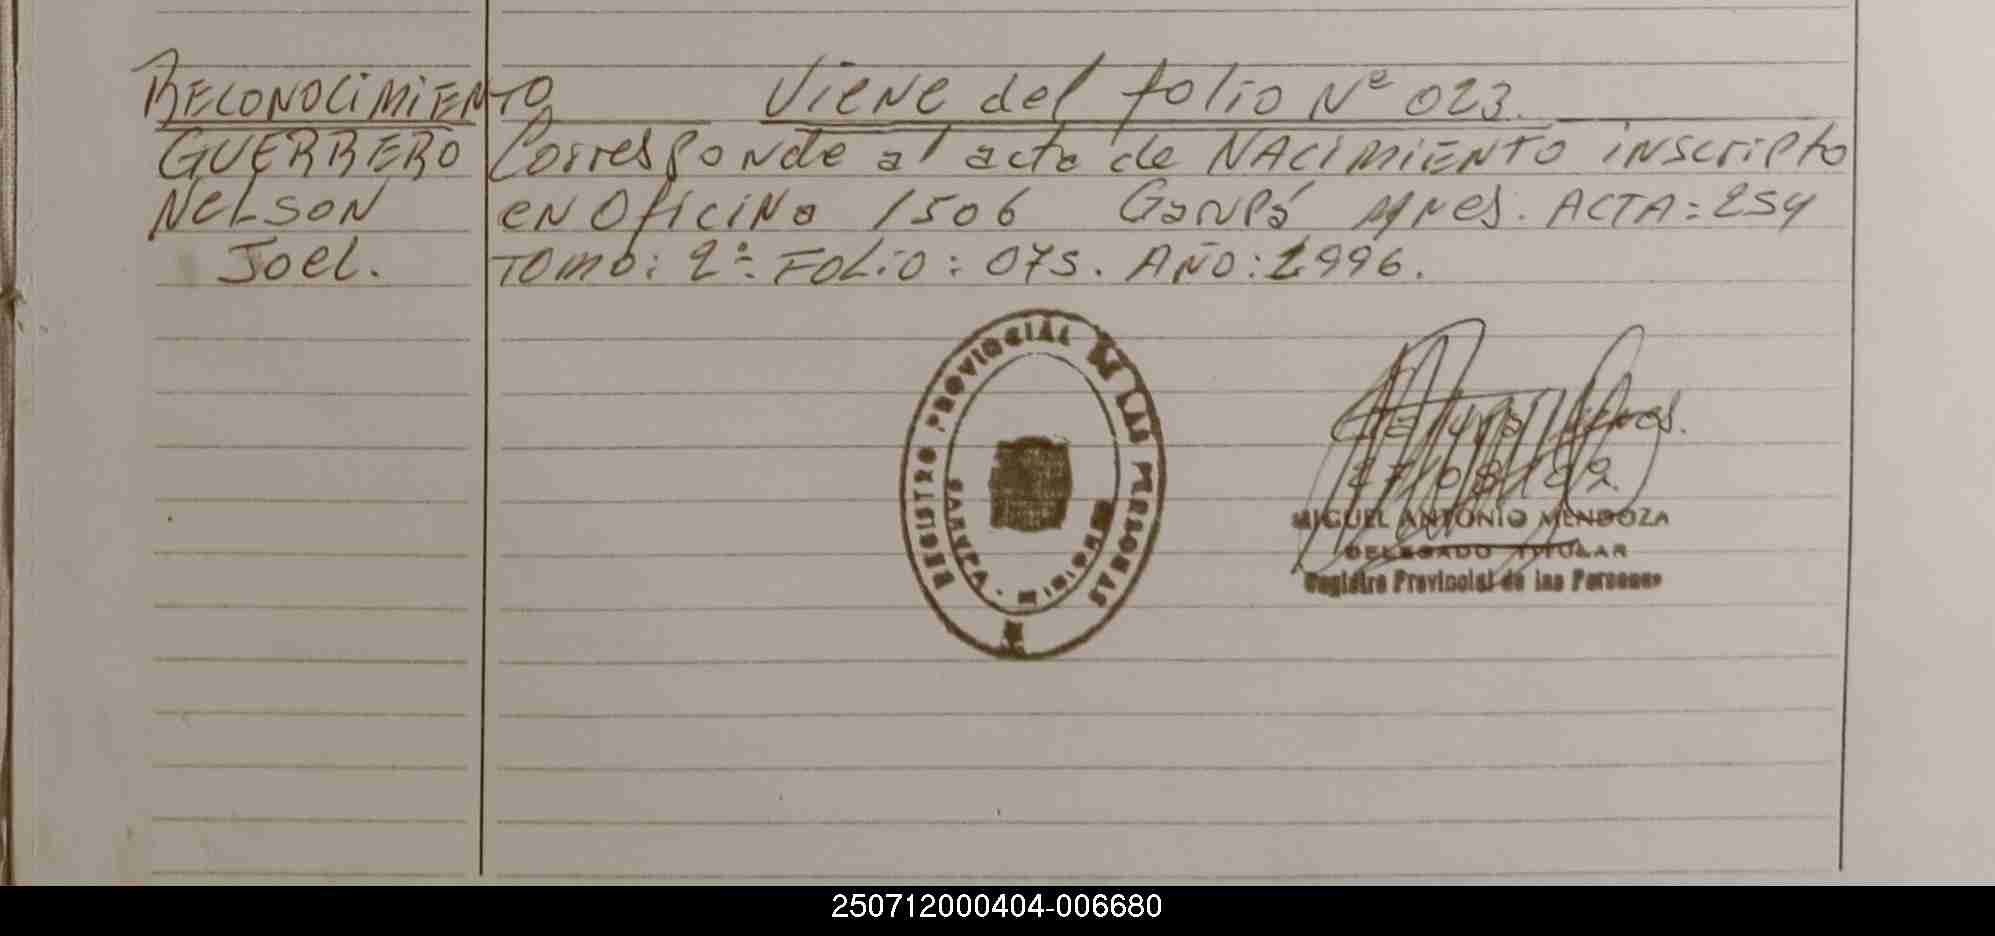 RECONOCIMIENTO Viene del folio Nº 023.
GUERRERO Corresponde al acta de NACIMIENTO inscripto
NELSON en Oficina 1506 Garupá Mnes. ACTA: 254
Joel. TOMO: 2º. FOLIO: 075. AÑO: 1996.
REGISTRO PROVINCIAL DE LAS PERSONAS
GARUPA - MISIONES
MIGUEL ANTONIO MENDOZA
DELEGADO TITULAR
Registro Provincial de las Personas
250712000404-006680